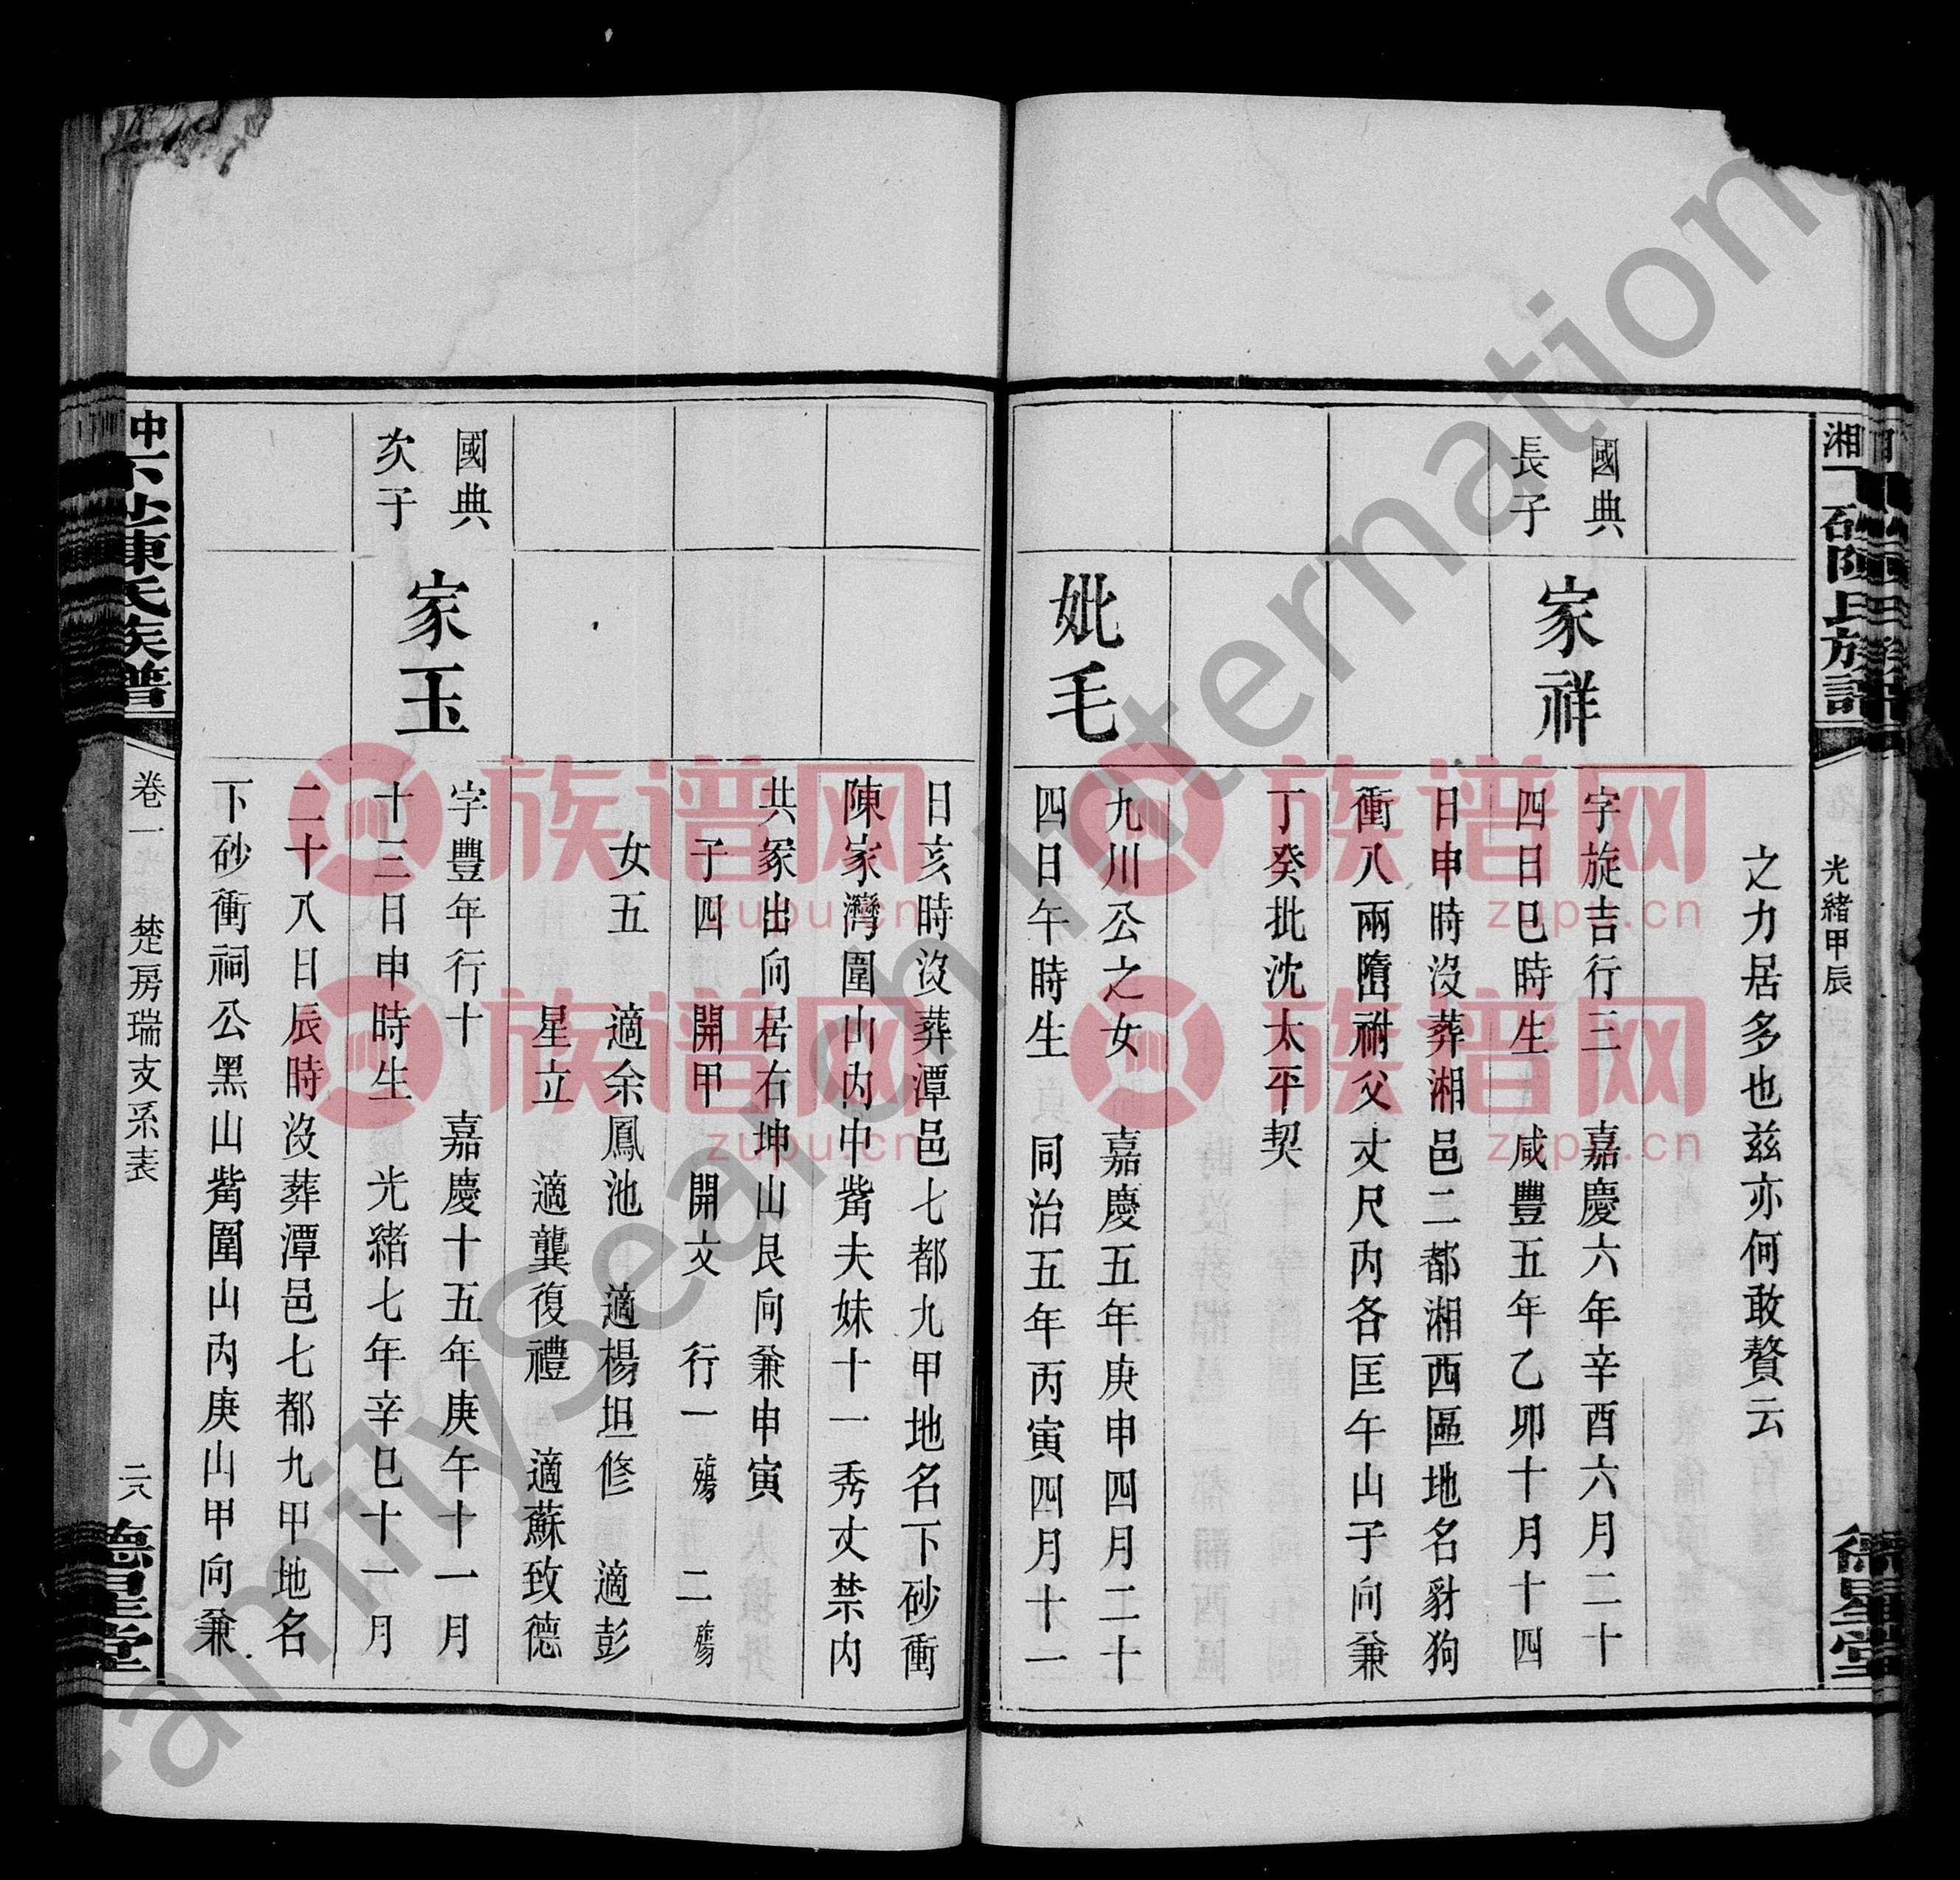 之力居多也茲亦何敢贅云
國典
長子
家祥
字旋吉行三 嘉慶六年辛酉六月二十
四日巳時生 咸豐五年乙卯十月十四
日申時沒葬湘邑二都湘西區地名豺狗
衝八兩墮祔父丈尺內各匡午山子向兼
丁癸批沈太平契
妣毛
九川公之女 嘉慶五年庚申四月二十
四日午時生 同治五年丙寅四月十一
日亥時沒葬潭邑七都九甲地名下砂衝
陳家灣圍山內中嘴夫妹十一秀丈禁內
共冢出向居右坤山艮向兼申寅
子四 開甲 開文 行一殤 二殤
女五 適余鳳池 適楊坦修 適彭
星立 適龔復禮 適蘇致德
國典
次子
家玉
字豐年行十 嘉慶十五年庚午十一月
十三日申時生 光緒七年辛巳十一月
二十八日辰時沒葬潭邑七都九甲地名
下砂衝祠公黑山嘴圍山內庚山甲向兼
光緒甲辰
卷一 楚房瑞支系表
二六
德星堂
族谱网
zupu.cn
族谱网
zupu.cn
族谱网
zupu.cn
族谱网
zupu.cn
FamilySearch International